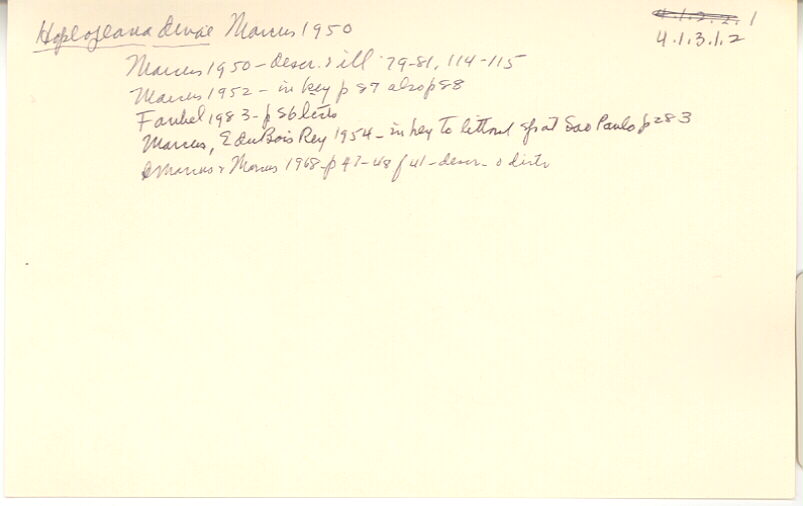 Hoploplana divae Marcus 1950
4.1.3.2.1
4.1.3.1.2
Marcus 1950 - descr. & ill 79-81, 114-115
Marcus 1952 - in key p 87 also p 88
Faubel 1983 - p 86 lists
Marcus, E du Bois Rey 1954 - in key to littoral sp at Sao Paulo p 283
Marcus & Marcus 1968 - p 47-48 f 41 - descr - & distr